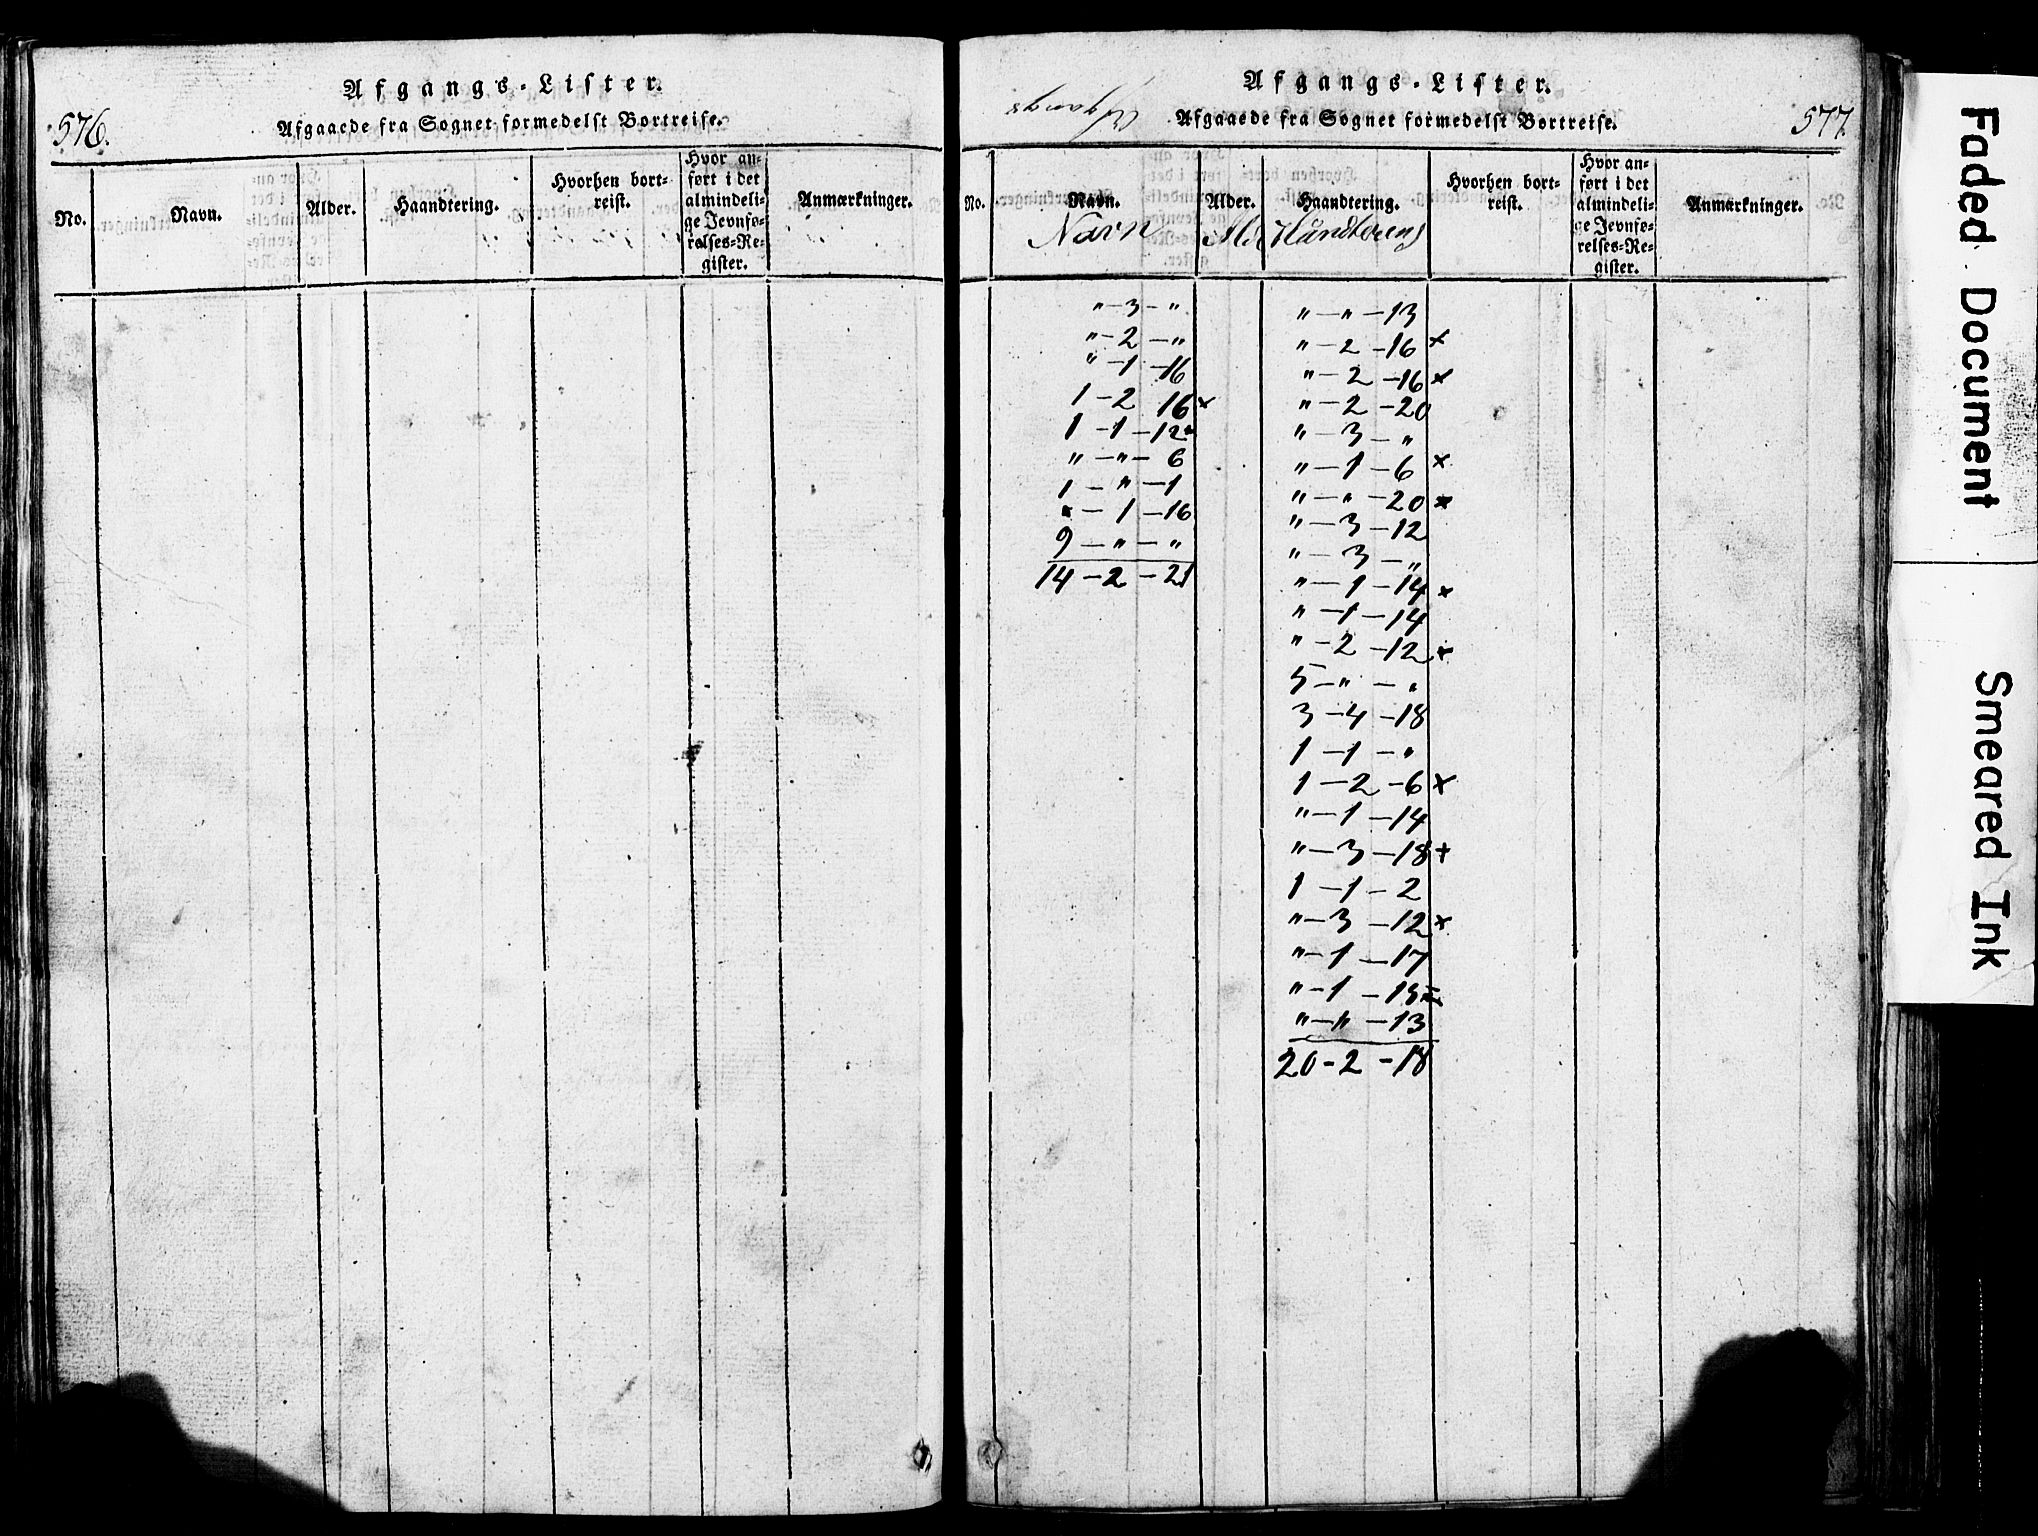 576.
Afgangs-Lister.
Afgaaede fra Sognet formedelst Bortreise.
No.
Navn.
Alder.
Haandtering.
Hvorhen bort=
reist.
Hvor an=
ført i det
almindeli=
ge Jevnfø=
relses=Re=
gister.
Anmærkninger.
Afgangs-Lister.
Afgaaede fra Sognet formedelst Bortreise.
577.
No.
Navn.
Alder.
Haandtering.
Hvorhen bort=
reist.
Hvor an=
ført i det
almindeli=
ge Jevnfø=
relses=Re=
gister.
Anmærkninger.
Navn
" - 3 - "
" - 2 - "
" - 1 - 16
1 - 2 16 x
1 - 1 - 12
" - " - 6
1 - " - 1
- 1 - 16
9 - " - "
14 - 2 - 21
" - " - 13
" - 2 - 16 x
" - 2 - 16 x
" - 2 - 20
" - 3 - "
" - 1 - 6 x
" - " - 20 x
" - 3 - 12
" - 3 - "
" - 1 - 14 x
" - 1 - 14
" - 2 - 12 x
5 - " - "
3 - 4 - 18
1 - 1 - "
1 - 2 - 6 x
" - 1 - 14
" - 3 - 18 +
1 - 1 - 2
" - 3 - 12 x
" - 1 - 17
" - 1 - 15 x
" - " - 13
20 - 2 - 18
Faded Document
Smeared Ink